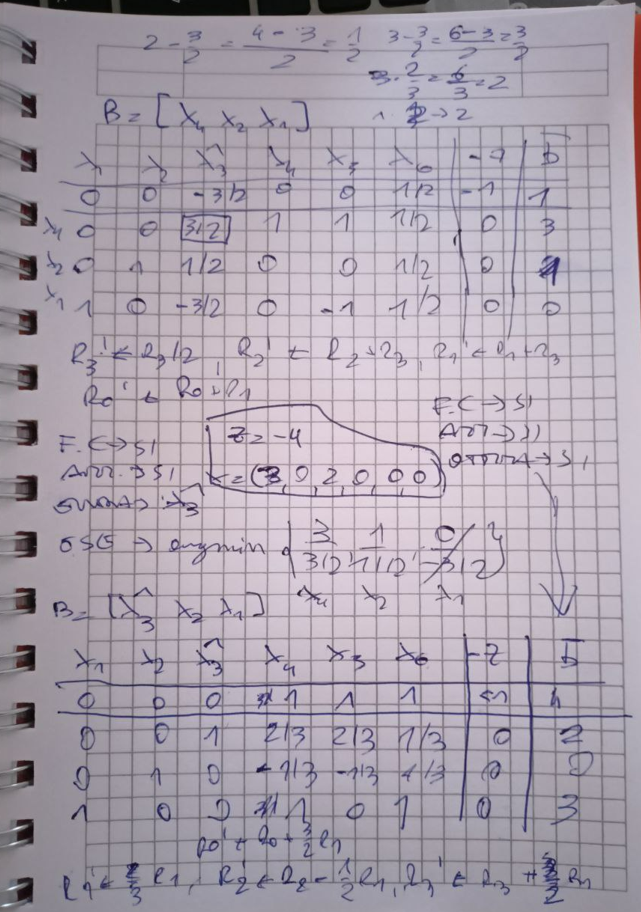 2 - 3/2 = 4-3/2 = 1/2   3 - 3/2 = 6-3/2 = 3/2
3·2/3 = 6/3 = 2
B = [x4 x2 x1]
x1 x2 x̂3 x4 x5 x6 -z b̄
0 0 -3/2 0 0 1/2 -1 1
x4 0 0 3/2 1 1 1/2 0 3
x2 0 1 1/2 0 0 1/2 0 1
x1 1 0 -3/2 0 -1 1/2 0 0
R3' ← R3/2 R2' ← R2+R3, R1' ← R1+R3
R0' ← R0+R1
F.C → SI
F.C → SI
z = -4
AMM → SI
AMM. → SI
x = (3, 0, 2, 0, 0, 0)
OTTIMA → SI
ENTRA → x̂3
ESCE → argmin { 3/3/2, 1/1/2, 0/-3/2 }
x4 x2 x1
B = [x̂3 x2 x1]
x1 x2 x̂3 x4 x5 x6 -z b̄
0 0 0 1 1 1 -1 4
0 0 1 2/3 2/3 1/3 0 2
0 1 0 -1/3 -1/3 1/3 0 0
1 0 0 1 0 1 0 3
R0' ← R0 + 3/2 R1
R1' ← 2/3 R1, R2' ← R2 - 1/2 R1, R3' ← R3 + 3/2 R1